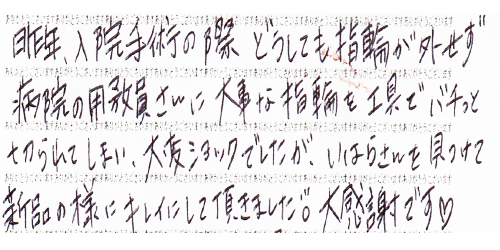 昨年、入院手術の際 どうしても、指輪が外せず
病院の用務員さんに 大事な指輪を工具でバチっと
切られてしまい、大変ショックでしたが、いはらさんを見つけて
新品の様にキレイにして頂きました。大感謝です♡